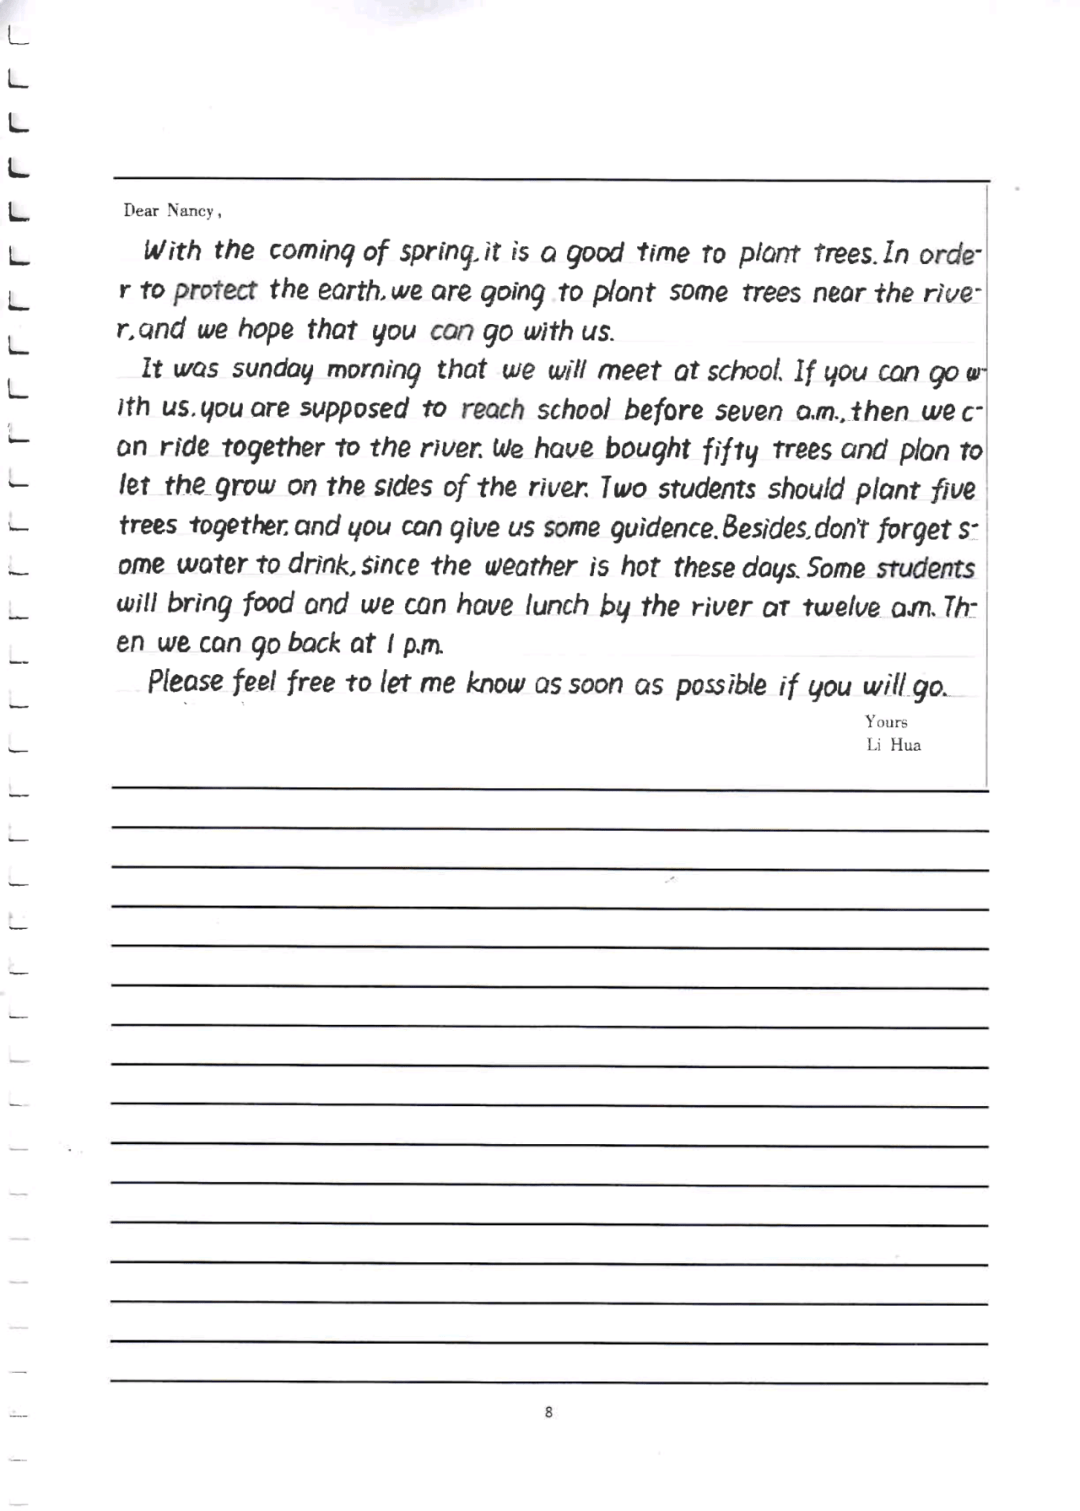 Dear Nancy,
With the coming of spring, it is a good time to plant trees. In orde-
r to protect the earth, we are going to plant some trees near the rive-
r, and we hope that you can go with us.
It was sunday morning that we will meet at school. If you can go w-
ith us, you are supposed to reach school before seven a.m., then we c-
an ride together to the river. We have bought fifty trees and plan to
let the grow on the sides of the river. Two students should plant five
trees together, and you can give us some guidence. Besides, don't forget s-
ome water to drink, since the weather is hot these days. Some students
will bring food and we can have lunch by the river at twelve a.m. Th-
en we can go back at 1 p.m.
Please feel free to let me know as soon as possible if you will go.
Yours
Li Hua
8